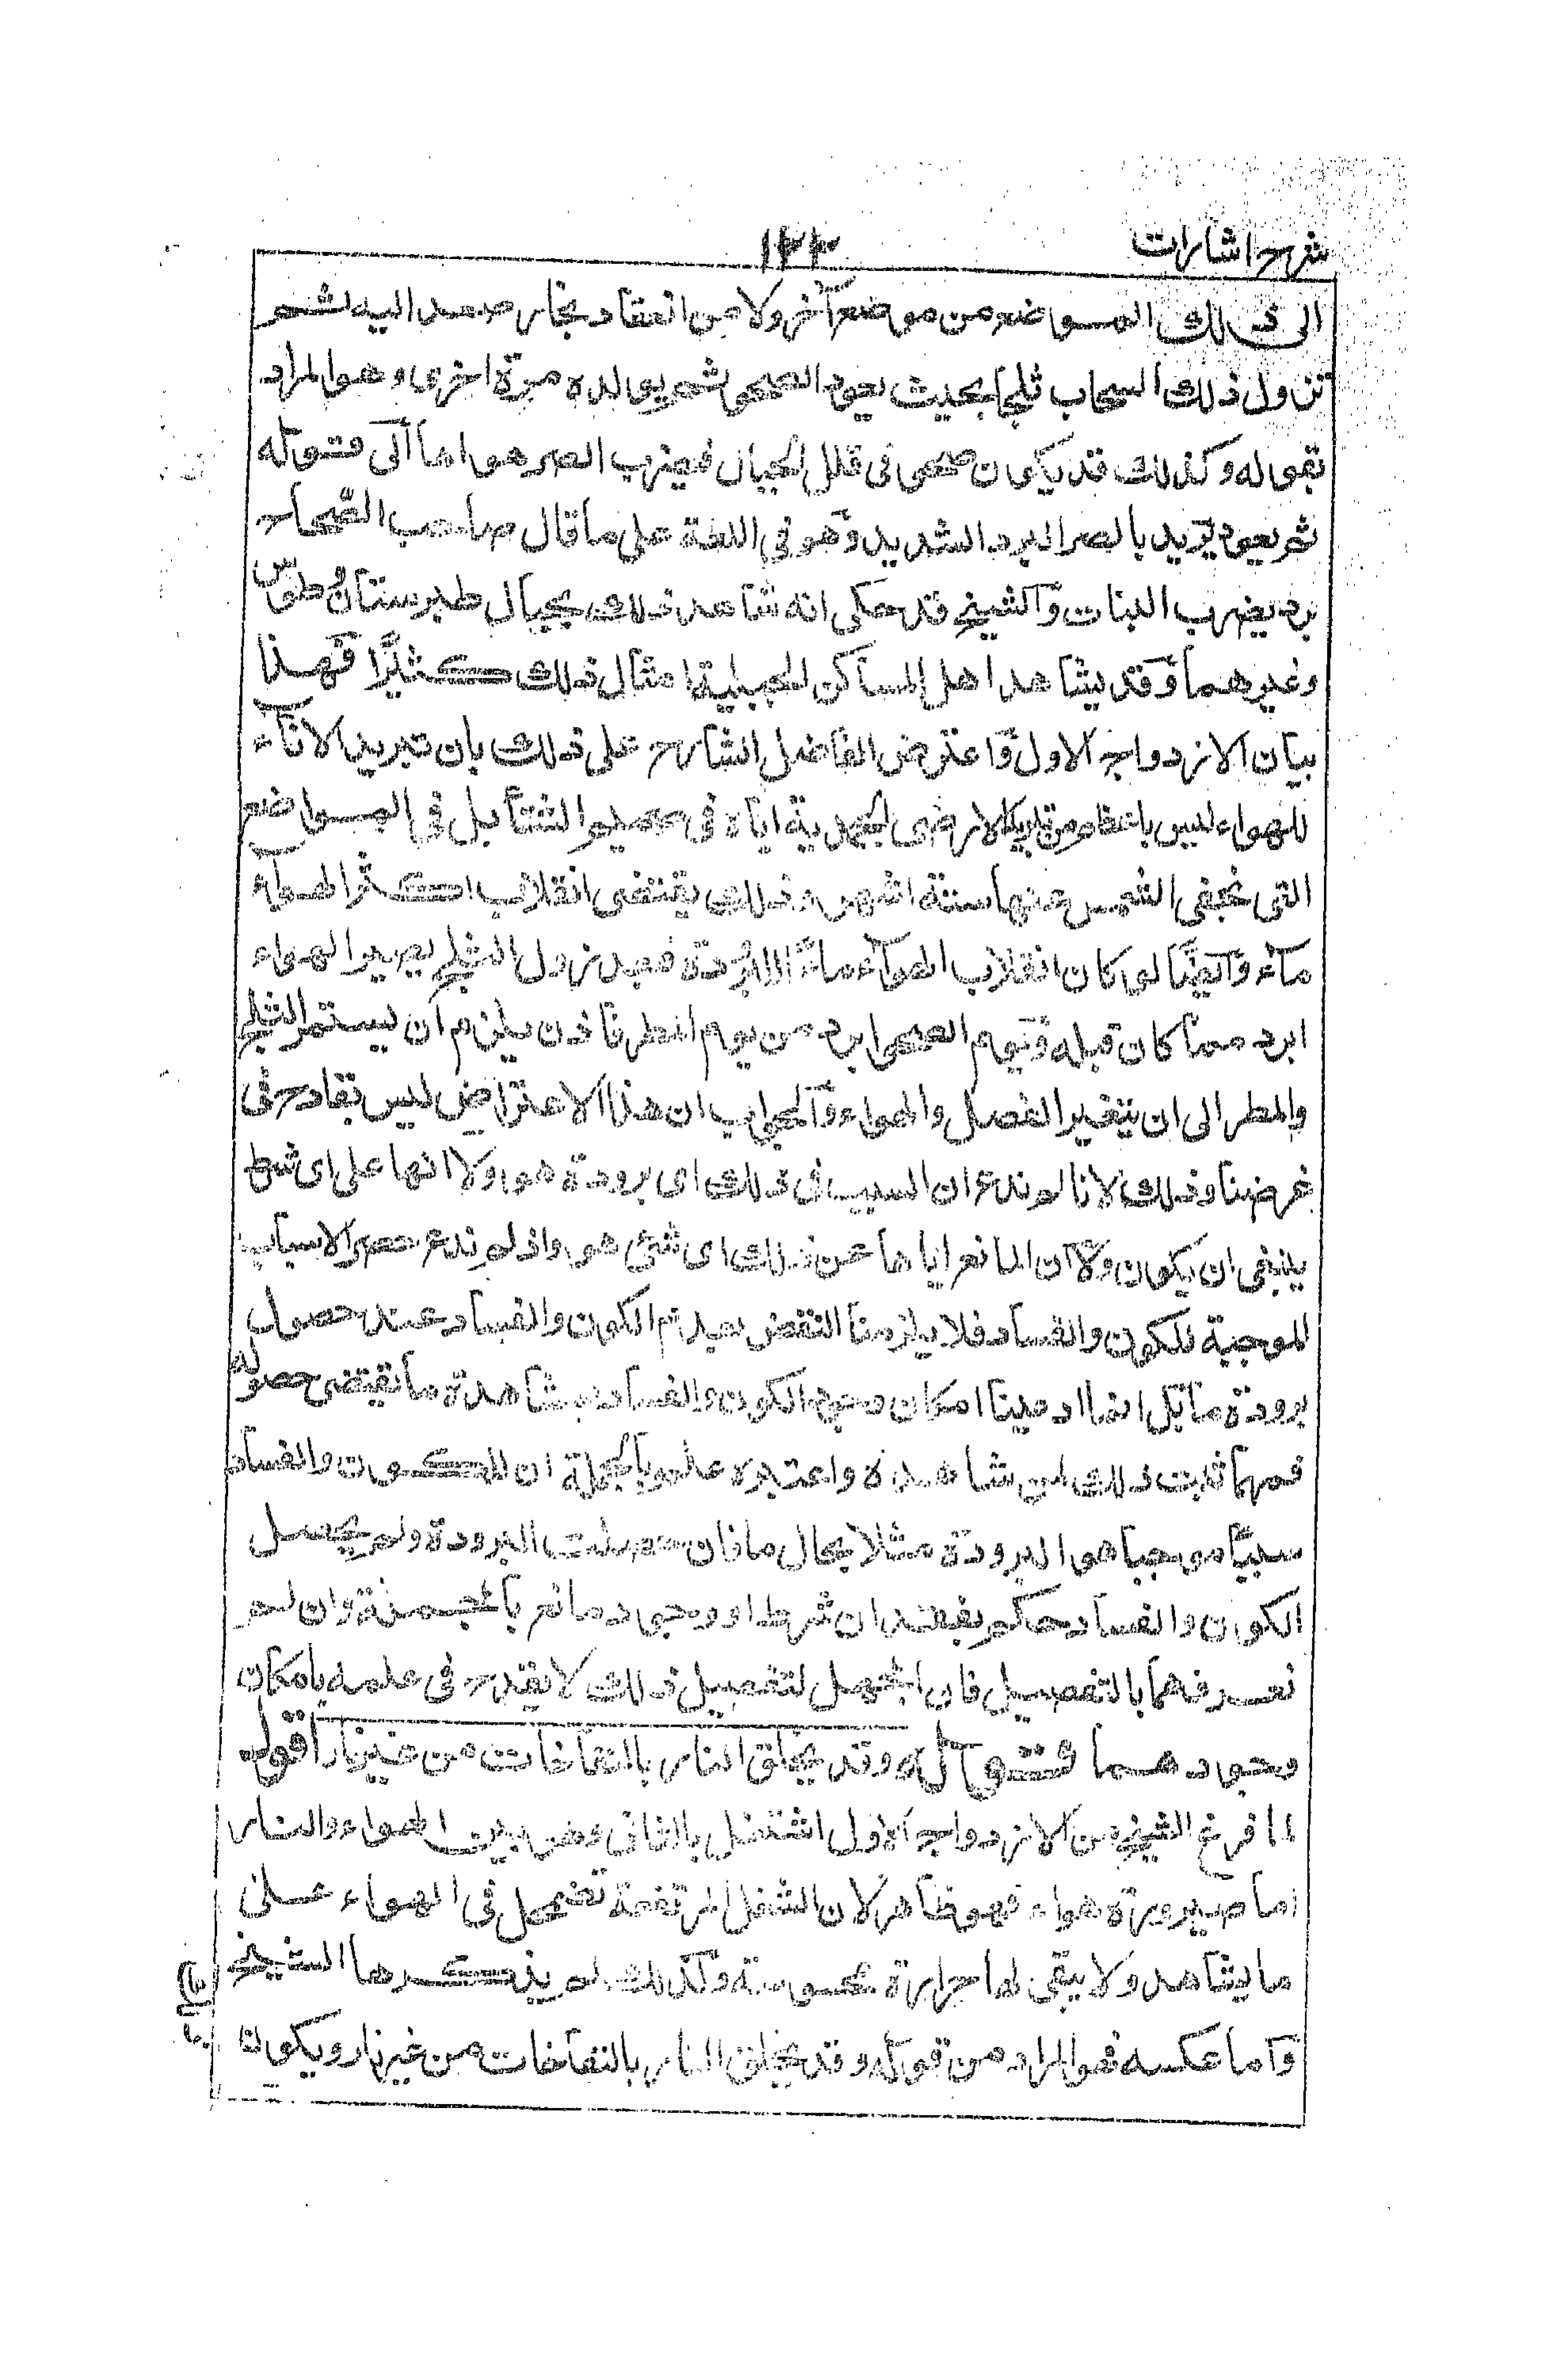 شرح اشارات
١٢٣
الى ذلك المواضع من موضع آخر ولا من انعقاد بخار صعد اليه ثم
تنزول ذلك السحاب ثلجا بحيث يعود الصحو ثم يوالده مرة اخرى وهو المراد
بقوله وكذلك قد يكون صحو فى قلل الجبال فيضرب الصر هواها الى قوله
ثم يعود يريد بالصر البرد الشديد وهو فى اللغة على ما قال صاحب الصحاح
برد يضرب النبات والشيخ قد حكى انه شاهد ذلك بجبال طبرستان وطوس
وغيرهما وقد يشاهد اهل المساكن الجبلية امثال ذلك كثيرا فهذا
بيان الازدواج الاول واعترض الفاضل الشارح على ذلك بان تبريد الاناء
للهواء ليس باعظم من تبريد الارض الجمدية اياه فى صميم الشتا بل فى المواضع
التى تخفى الشمس عنها ستة اشهر وذلك يقتضى انقلاب اكثر الهواء
ماء وايضا لو كان انقلاب الهواء ماء للبرودة فبعد نزول الثلج يصير الهواء
ابرد مما كان قبله ويوم الصحو ابرد من يوم المطر فاذن يلزم ان يستمر الثلج
والمطر الى ان يتغير الفصل والهواء والجواب ان هذا الاعتراض ليس بقادح فى
غرضنا وذلك لانا لم ندع ان السبب فى ذلك اى برودة هو ولا انها على اى شرط
ينبغى ان يكون ولا ان المانع اياها عن ذلك اى شئ هو واذ لم ندع حصر الاسباب
الموجبة للكون والفساد فلا يلزمنا النقض بعدم الكون والفساد عند حصول
برودة ما بل انما ادعينا امكان وجود الكون والفساد بمشاهدة ما يقتضى حصوله
فمهما ثبت ذلك لمن شاهده واعتبره علم بالجملة ان للكون والفساد
سببا موجبا هو البرودة مثلا بحال ما فان حصلت البرودة ولم يحصل
الكون والفساد حكم بفقدان شرط او وجود مانع بالجملة وان لم
نعرفهما بالتفصيل فان الجهل لتفصيل ذلك لا يقدح فى علمه بامكان
وجودهما قوله وقد يخلق النار بالنفاخات من غير نار اقول
لما فرغ الشيخ من الازدواج الاول اشتغل بالثانى وهو بين الهواء والنار
اما صيرورة هواء فهو ظاهر لان الشعل المرتفعة تضمحل فى الهواء على
ما يشاهد ولا يبقى لها حرارة محسوسة وكذلك لم يذكرها الشيخ
واما عكسه فهو المراد من قوله وقد يخلق النار بالنفاخات من غير نار ويكون